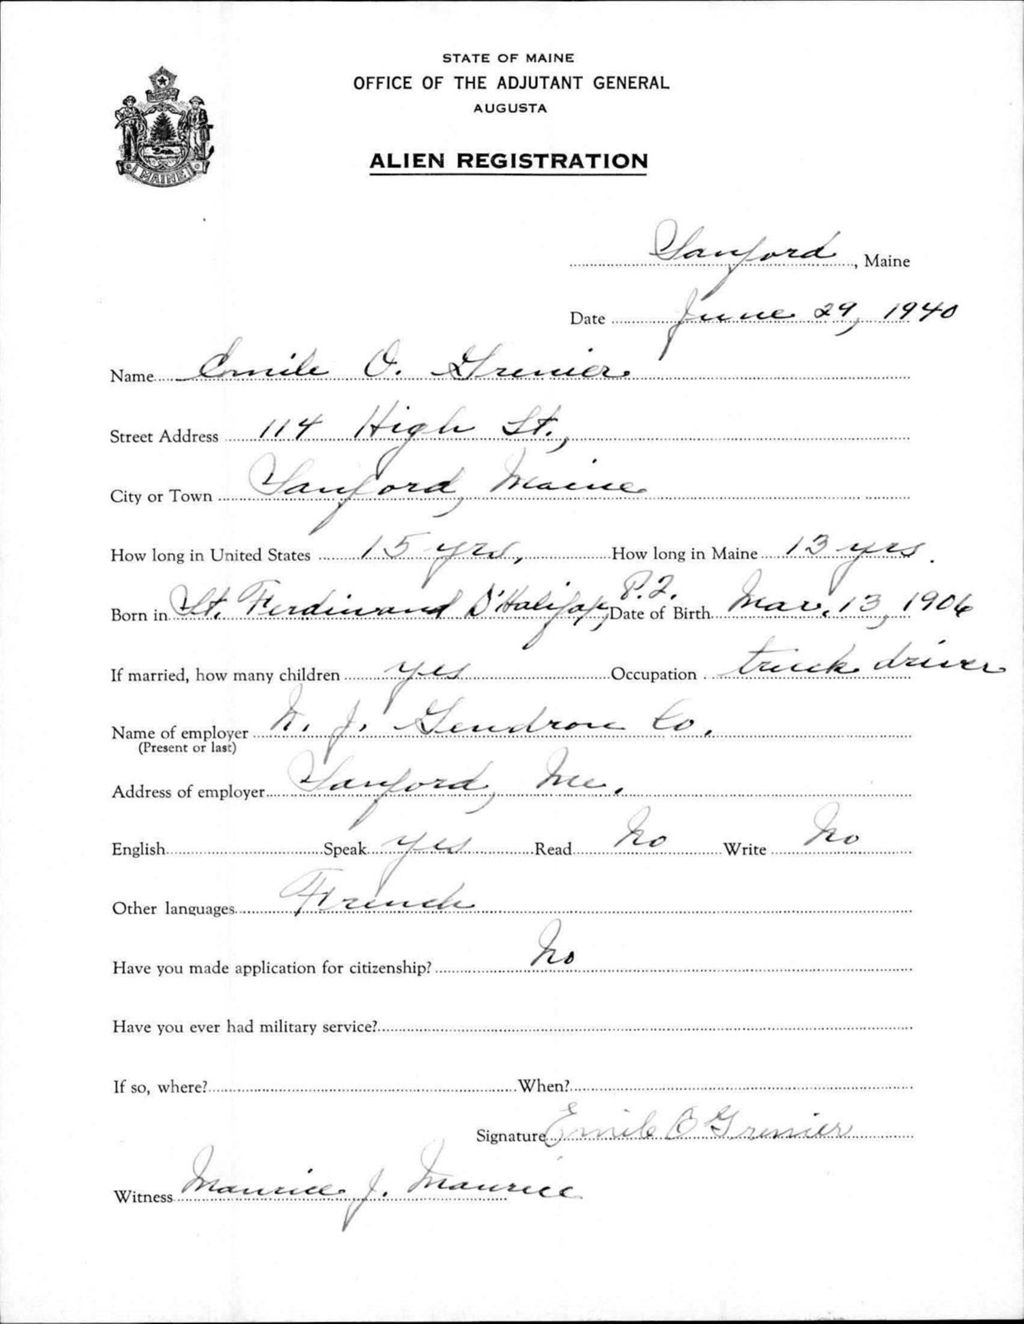 STATE OF MAINE
OFFICE OF THE ADJUTANT GENERAL
AUGUSTA
ALIEN REGISTRATION
MAINE
Sanford, Maine
Date June 29, 1940
Name Emile O. Grenier
Street Address 114 High St.,
City or Town Sanford, Maine
How long in United States 15 yrs, How long in Maine 13 yrs.
Born in St. Ferdinand D'Halifax, P.Q. Date of Birth Mar. 13, 1906
If married, how many children yes Occupation truck driver
Name of employer N. J. Gendron Co.
(Present or last)
Address of employer Sanford, Me.
English Speak yes Read No Write No
Other languages French
Have you made application for citizenship? No
Have you ever had military service?
If so, where? When?
Signature Emile O Grenier
Witness Maurice J. Maurice